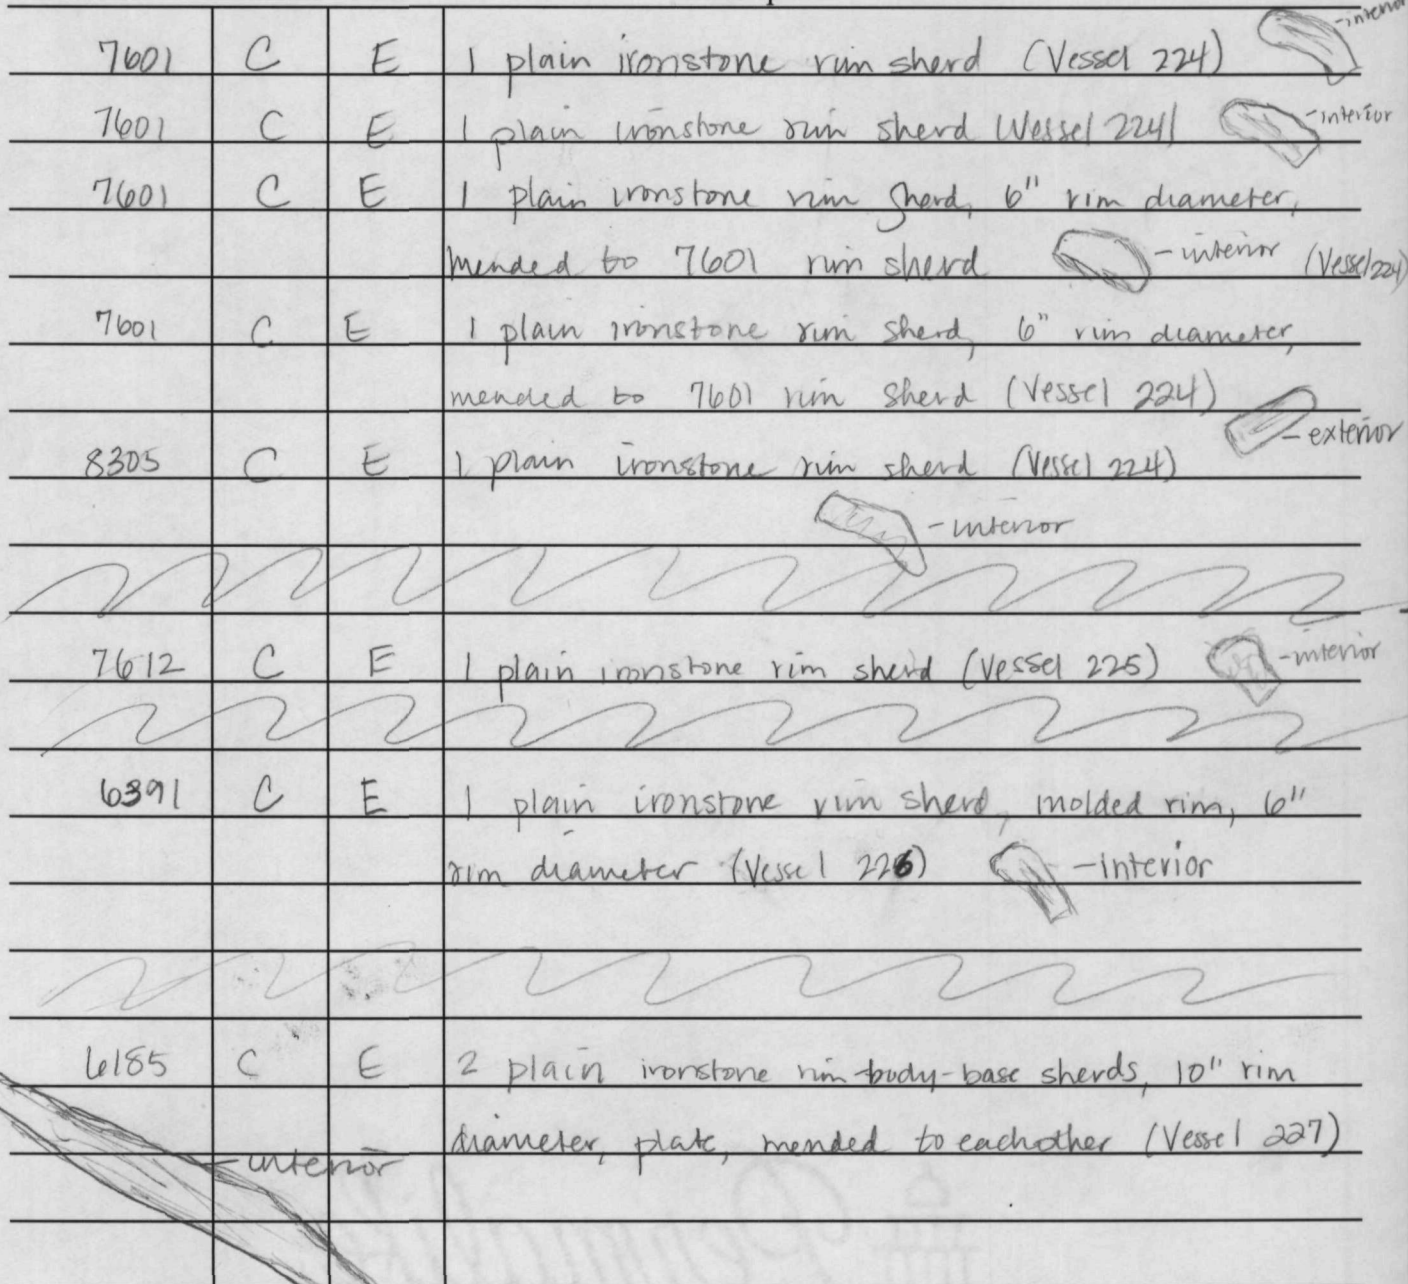 -interior
7601 C E 1 plain ironstone rim sherd (Vessel 224)
7601 C E 1 plain ironstone rim sherd (Vessel 224) -interior
7601 C E 1 plain ironstone rim sherd, 6" rim diameter,
mended to 7601 rim sherd -interior (Vessel 224)
7601 C E 1 plain ironstone rim sherd, 6" rim diameter,
mended to 7601 rim sherd (Vessel 224)
-exterior
8305 C E 1 plain ironstone rim sherd (Vessel 224)
-interior
7612 C E 1 plain ironstone rim sherd (Vessel 225) -interior
6391 C E 1 plain ironstone rim sherd, molded rim, 6"
rim diameter (Vessel 226) -interior
6185 C E 2 plain ironstone rim-body-base sherds, 10" rim
diameter, plate, mended to eachother (Vessel 227)
-interior